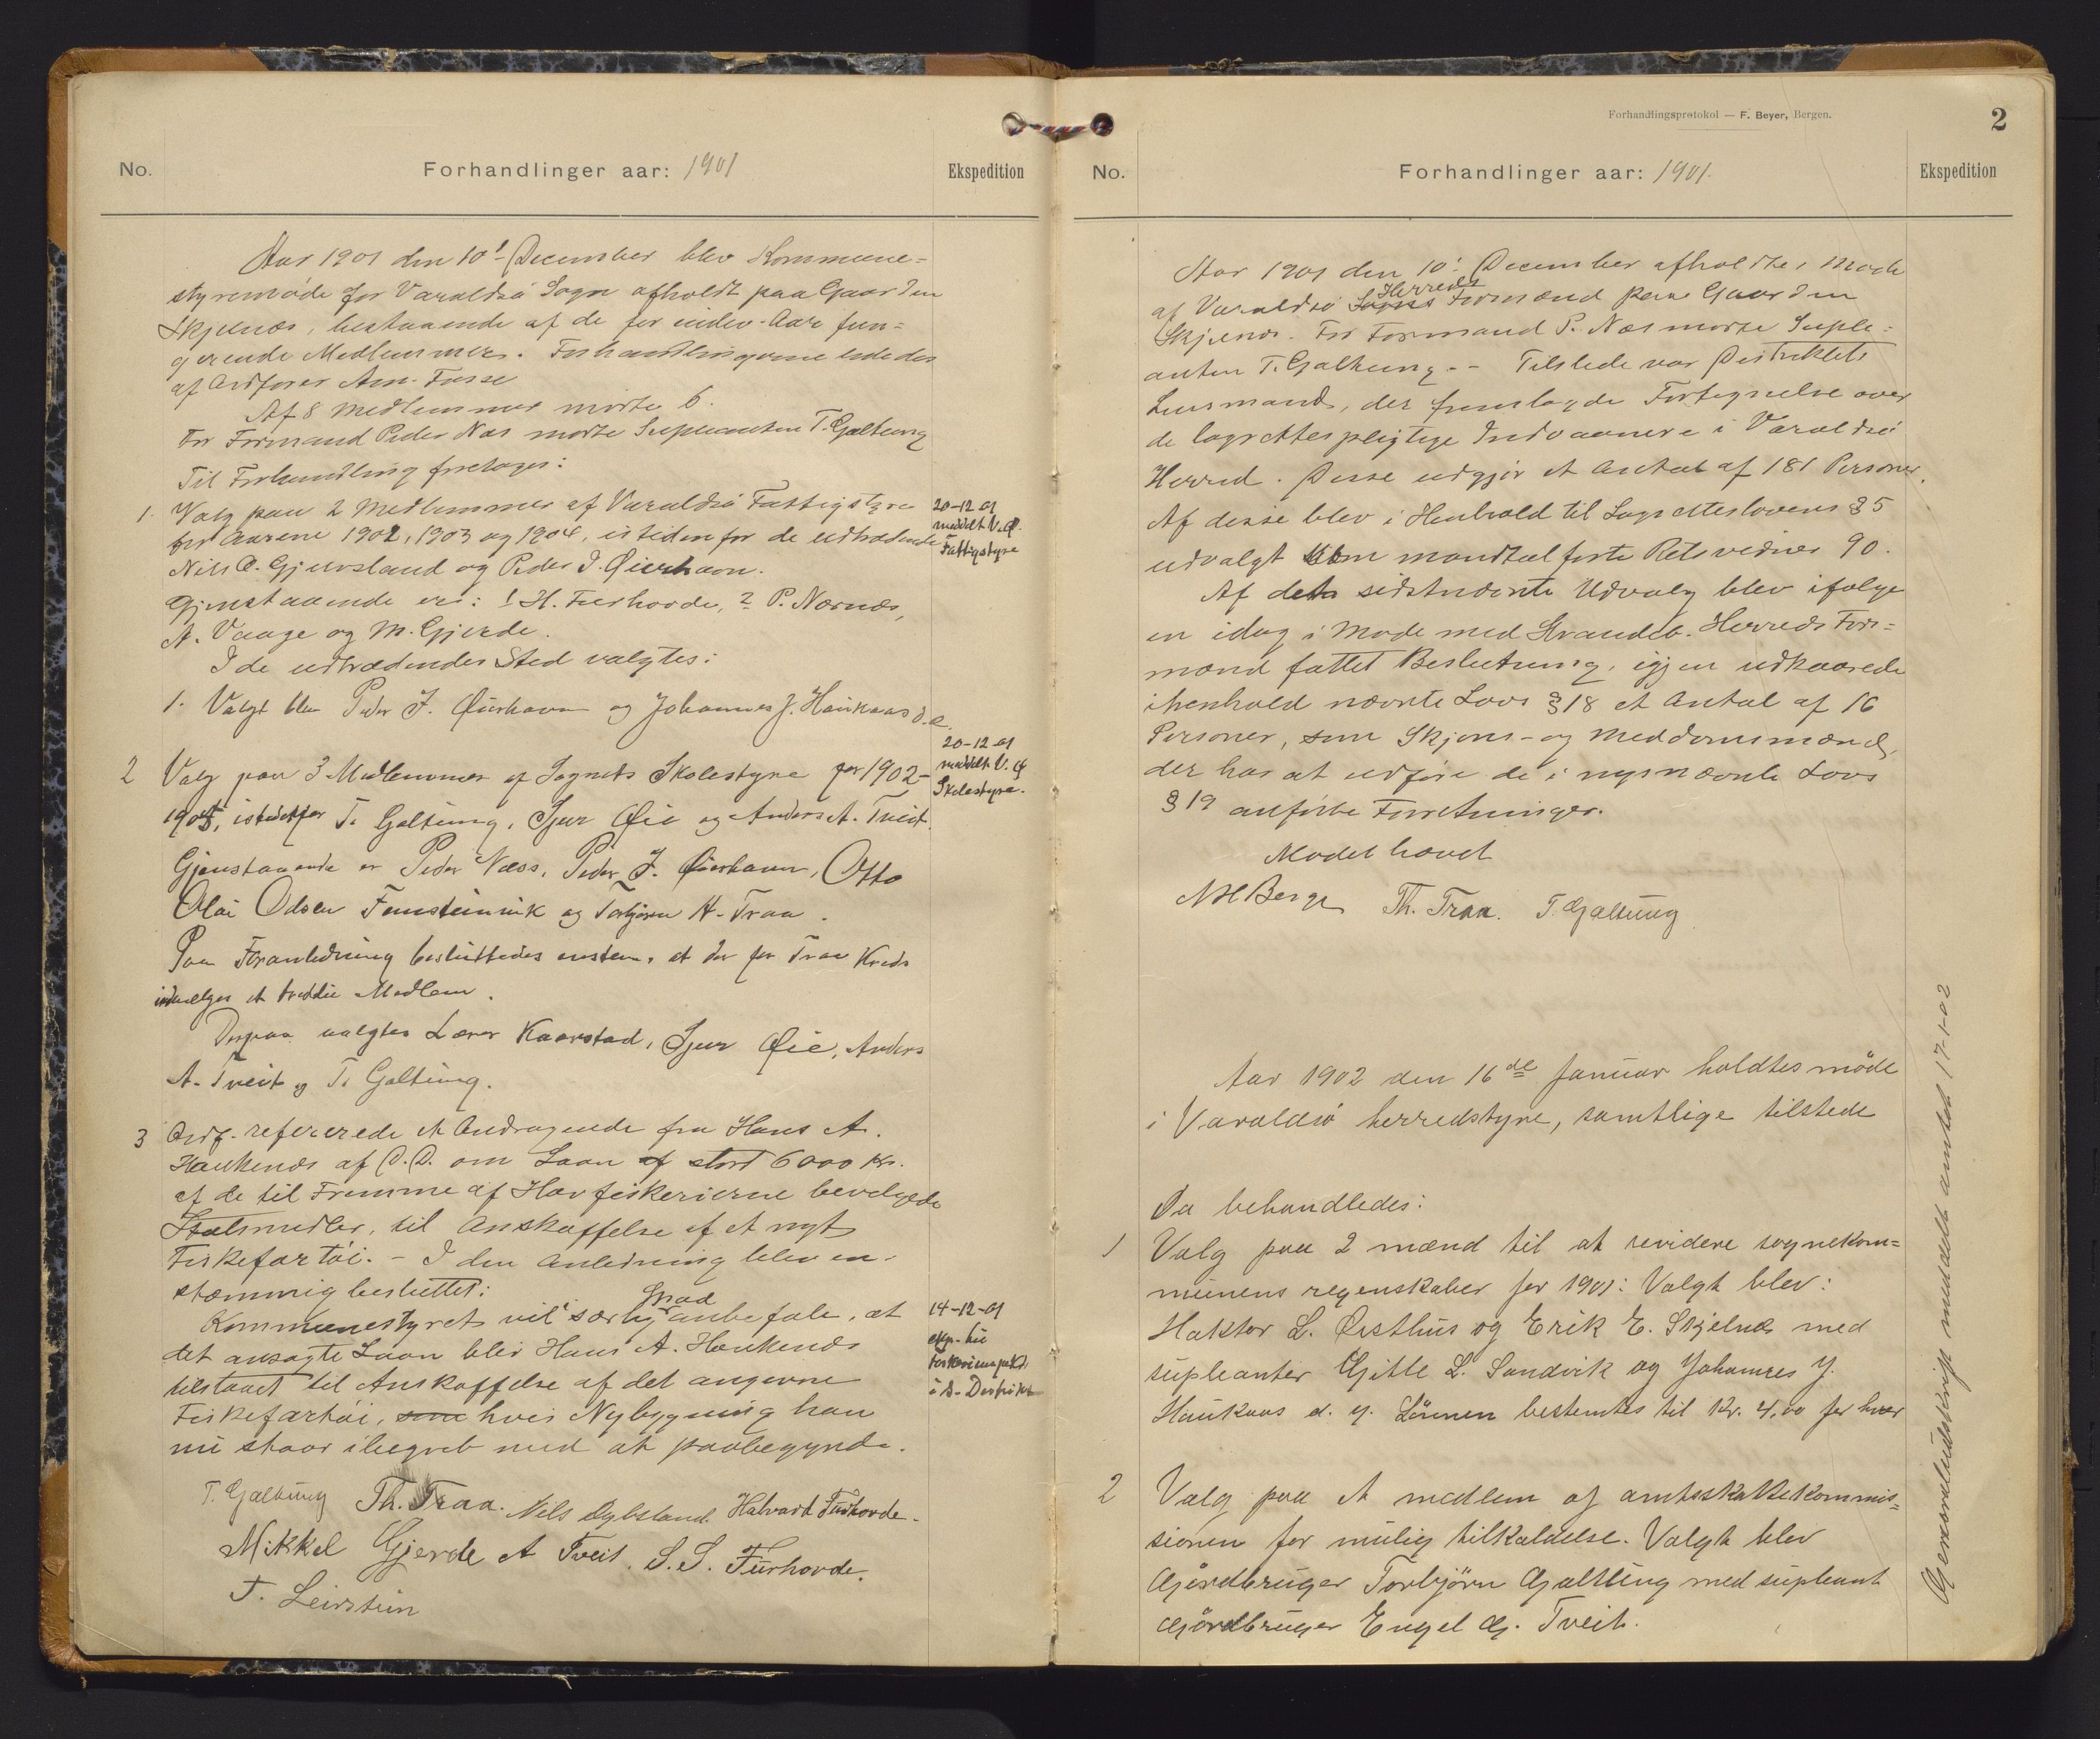 No.
Forhandlinger aar: 1901
Ekspedition
Aar 1901 den 10! December blev Kommune=
styremøde for Varaldsø Sogn afholdt paa Gaarden
Skjelnæs, bestaaende af de for indev. Aar fun=
gerende Medlemmer. Forhandlingerne lededes
af Ordfører Am. Fosse
Af 8 Medlemmer mødte 6.
For Formand Peder Næs mødte Supleanten T. Galtung
Til Forhandling foretages:
1. Valg paa 2 Medlemmer af Varaldsø Fattigstyre
for Aarene 1902, 1903 og 1904, istedenfor de udtrædende
Nils O. Gjuvsland og Peder J. Øierhavn.
Gjenstaaende er: 1 H. Furhovde, 2 P. Nærnæs,
A. Vaage og M. Gjerde.
I de udtrædendes Sted valgtes:
1. Valgt blev Peder J. Øierhavn og Johannes J. Haukaas d.e.
20-12-01
meddelt V. Ø.
Fattigstyre
2 Valg paa 3 Medlemmer af Sognets Skolestyre for 1902-
1904, istedetfor T. Galtung, Sjur Øie og Anders A. Tveit.
Gjenstaaende er Peder Næss, Peder J. Øierhavn, Otto
Olai Odsen Fensteinvik og Torbjørn H. Traa.
Paa Foranledning besluttedes enstem. at der for Traa Kreds
indvælges et treddie Medlem.
Derpaa valgtes Lærer Kaarstad, Sjur Øie, Anders
A. Tveit og T. Galtung.
20-12-01
meddelt V. Ø
Skolestyre.
3 Ordf. refererede et Andragende fra Hans A.
Haukenæs af D.D. om Laan af stort 6000 Kr.
af de til Fremme af Havfiskerierne bevilgede
Statsmidler, til Anskaffelse af et nyt
Fiskefartøi. - I den Anledning blev en-
stemmig besluttet:
Kommunestyret vil i særlig Grad anbefale, at
det ansøgte Laan bliv Hans A. Haukenæs
tilstaaet til Anskaffelse af det angivne
Fiskefartøi, som hvis Nybygning han
nu staar ibegreb med at paabegynde.
14-12-01
exp. til
i S. Distrikt
T. Galtung Th. Traa. Nils Øybsland. Halvard Furhovde.
Mikkel Gjerde A Tveit. S. S. Furhovde.
T. Leirstein
Forhandlingsprotokol — F. Beyer, Bergen.
2
No.
Forhandlinger aar: 1901.
Ekspedition
Aar 1901 den 10: December afholdtes Møde
af Varaldsø Sogns Herreds Formænd paa Gaarden
Skjelnæs. For Formand P. Næs mødte Suple=
anten T. Galtung. - - Tilstede var Distriktets
Lensmand, der fremlagde Fortegnelse over
de lagrettespligtige Indvaanere i Varaldsø
Herred. Disse udgjør et Antal af 181 Personer.
Af disse blev i Henhold til Lagretteslovens § 5
udvalgt som mandtalførte Retsvidner 90.
Af dette sidstnævnte Udvalg blev ifølge
en idag i Møde med Strandeb. Herreds For=
mænd fattet Beslutning, igjen udkaarede
ihenhold nævnte Lovs § 18 et Antal af 16
Personer, som Skjøns- og Meddomsmænd,
der har at udføre de i nysnævnte Lovs
§ 19 anførte Forretninger.
Mødet hævet
N H Berge Th. Traa. T. Galtung
Aar 1902 den 16de Januar holdtes møde
i Varaldsø herredstyre, samtlige tilstede
Da behandledes:
1 Valg paa 2 mænd til at revidere sognekom=
munens regnskaber for 1901: Valgt blev:
Haktor L. Østhus og Erik E. Skjelnæs med
supleanter Gitle L. Sandvik og Johannes J.
Haukaas d. y. Lønnen bestemtes til Kr. 4,00 for hver
2 Valg paa et medlem af amtsskattekommis=
sionen for mulig tilkaldelse. Valgt blev
Gårdbruger Torbjørn Galtung med supleant
Gårdbruger Engel G. Tveit.
Genpartudskrift meddelt amtet 17-1-02